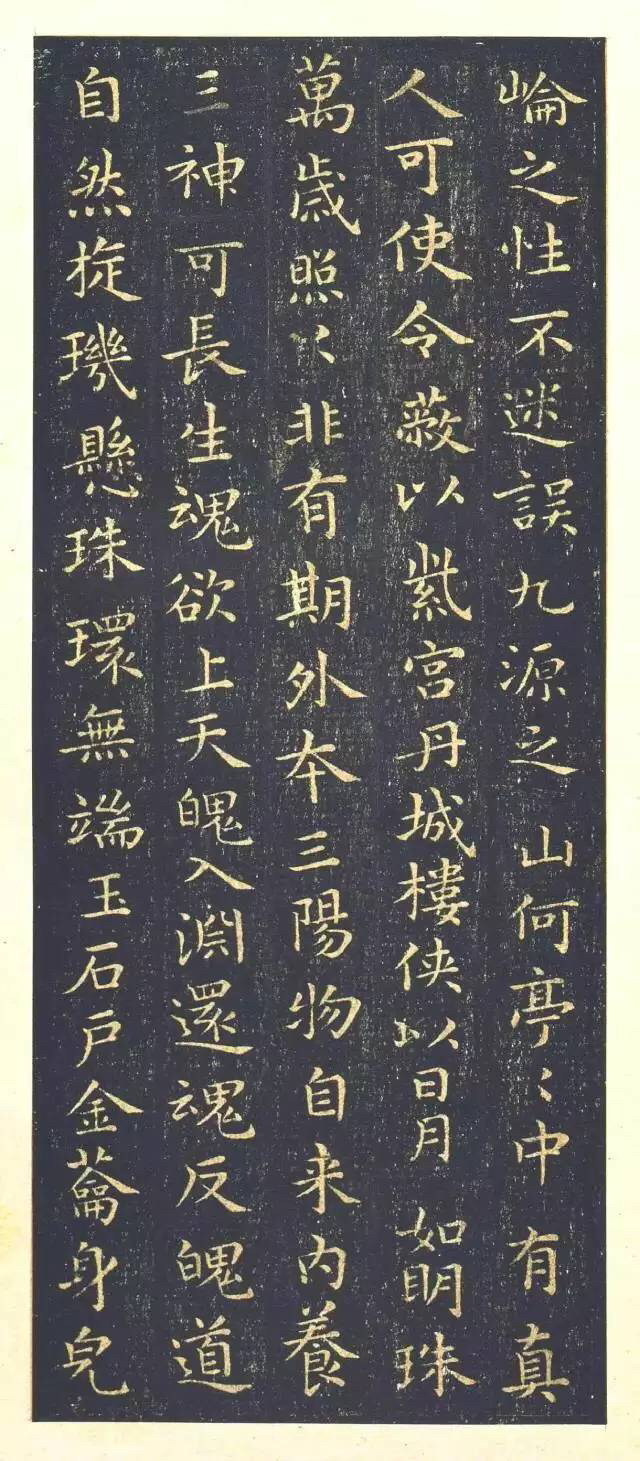 崘之性不迷誤九源之山何亭〻中有真
人可使令蔽以紫宮丹城樓俠以日月如明珠
萬歲照以非有期外夲三陽物自来内養
三神可長生魂欲上天魄入淵還魂反魄道
自然旋璣懸珠環無端玉石戶金蘥身皃